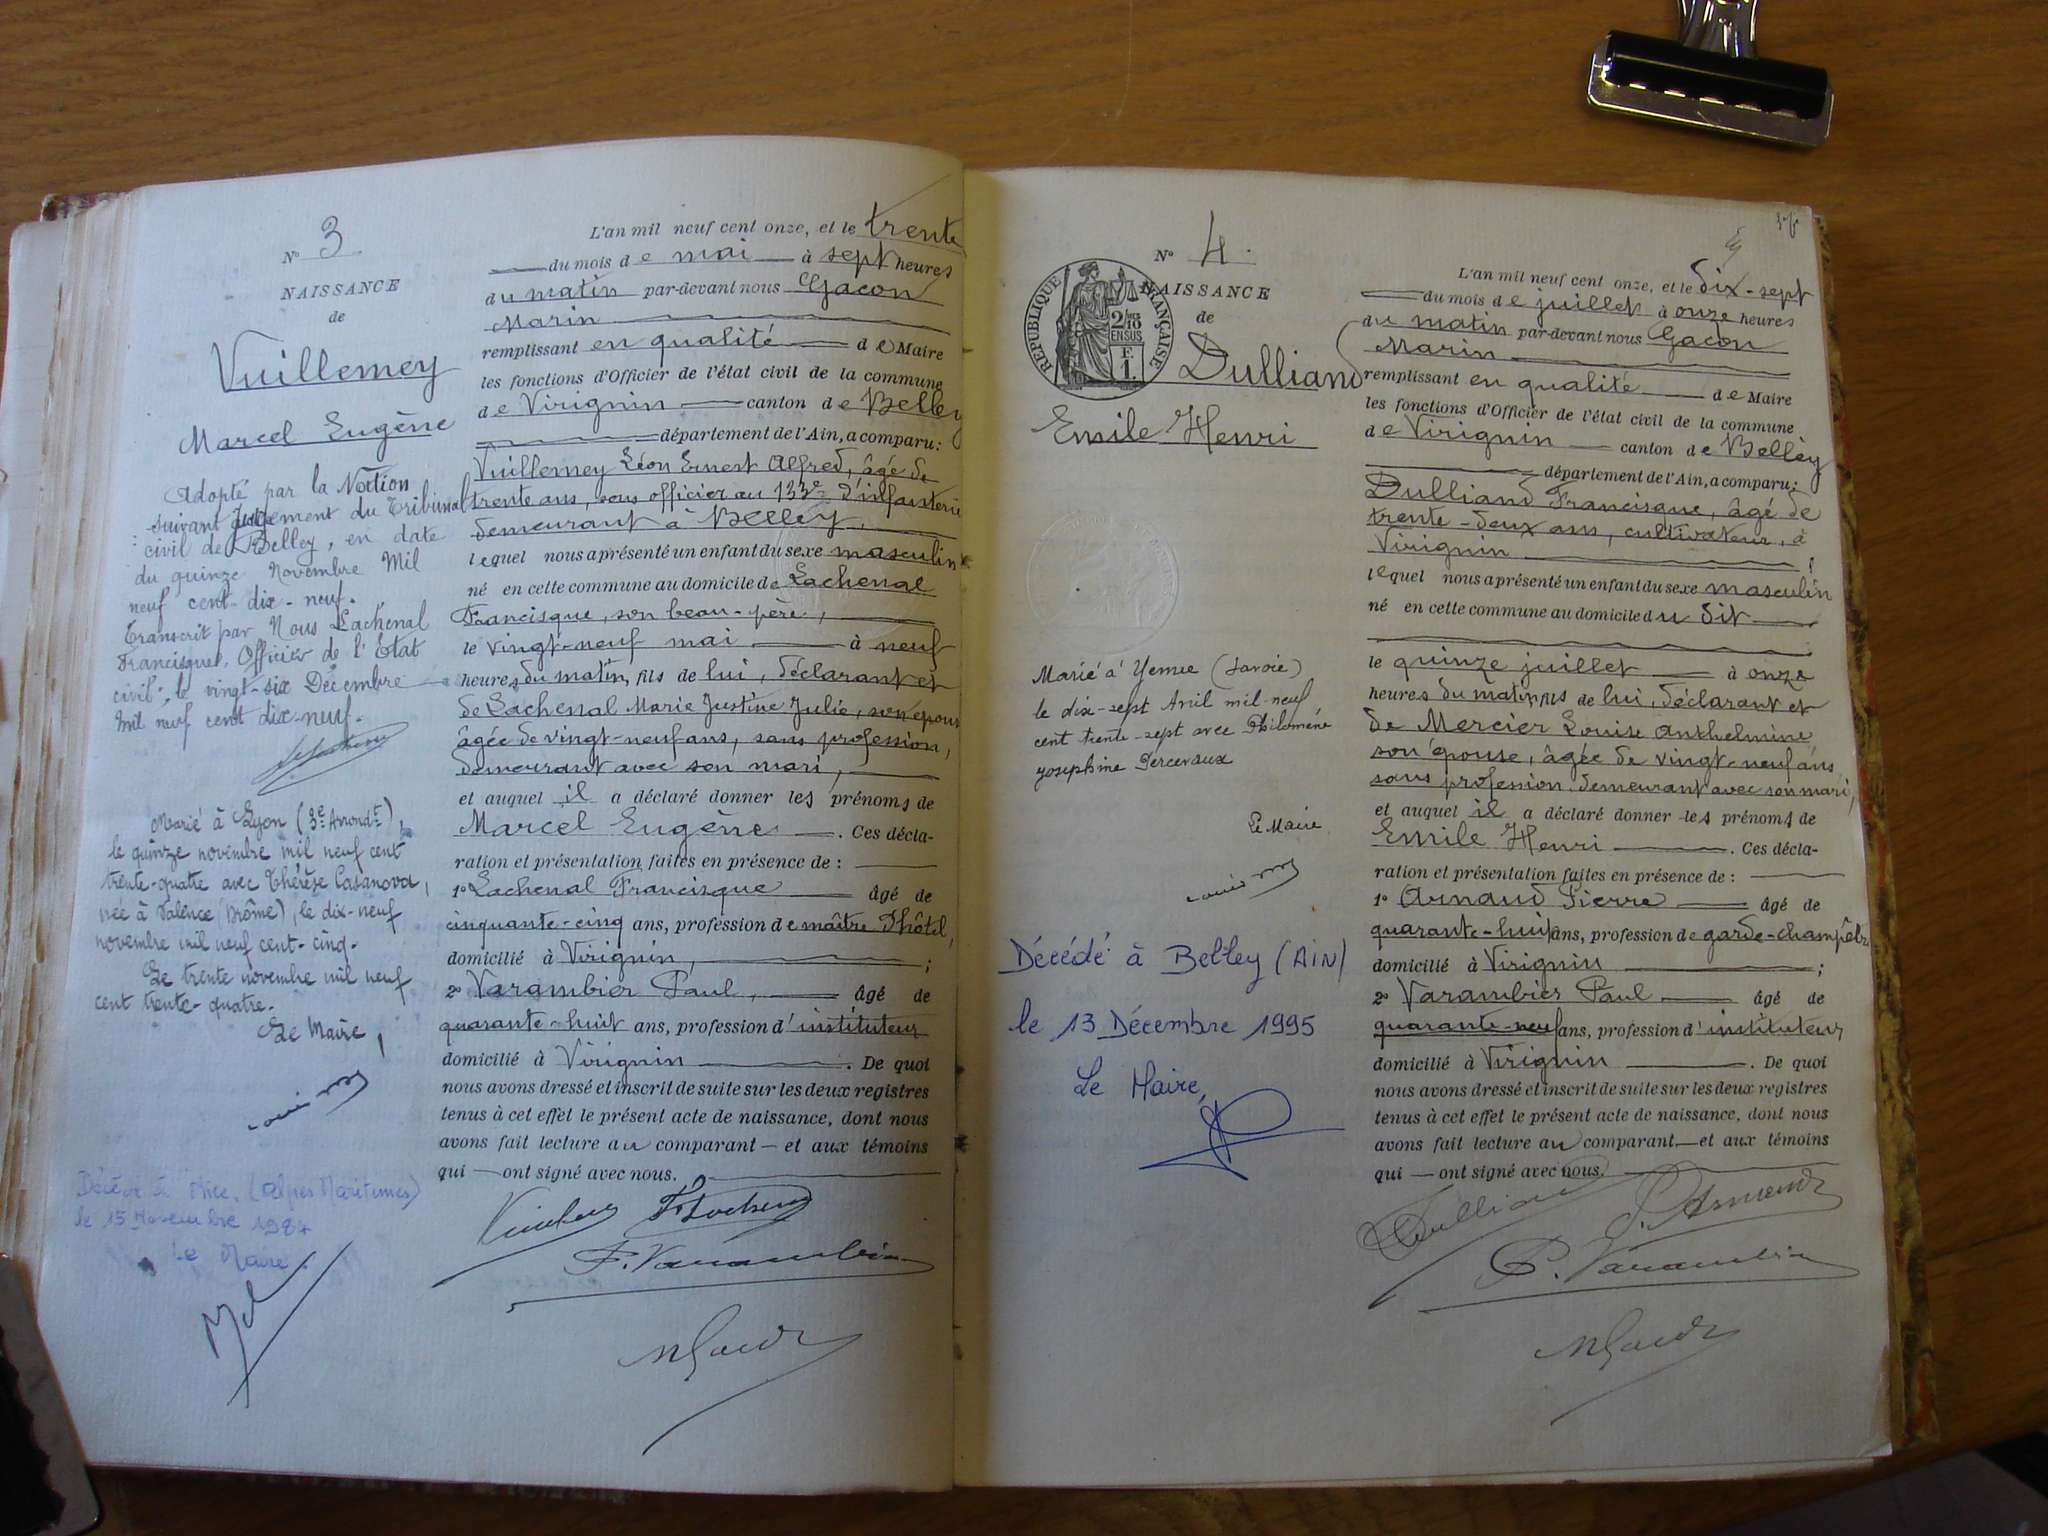 N° 3
NAISSANCE
de
Vuillemey
Marcel Eugène
Adopté par la Nation
suivant Jugement du Tribunal
civil de Belley, en date
du quinze Novembre Mil
neuf cent-dix-neuf.
Transcrit par Nous Lachenal
Francisque, Officier de l'Etat
civil, le vingt-six Décembre
Mil neuf cent dix-neuf.
Marié à Lyon (3e Arrondt),
le quinze novembre mil neuf cent
trente-quatre avec Thérèse Casanova,
née à Valence (Drôme), le dix-neuf
novembre mil neuf cent-cinq.
Le trente novembre mil neuf
cent trente-quatre.
Le Maire,
Décédé à Nice, (Alpes Maritimes)
le 15 Novembre 1984
Le Maire.
L'an mil neuf cent onze, et le trente
du mois de mai à sept heures
du matin par-devant nous Gacon
Marin
remplissant en qualité de Maire
les fonctions d'Officier de l'état civil de la commune
de Virignin canton de Belley
département de l'Ain, a comparu:
Vuillemey Léon Ernest Alfred, âgé de
trente ans, sous officier au 133e d'infanterie
demeurant à Belley,
lequel nous a présenté un enfant du sexe masculin
né en cette commune au domicile de Lachenal
Francisque, son beau-père,
le vingt-neuf mai à neuf
heures du matin, fils de lui, déclarant et
de Lachenal Marie Justine Julie, son épouse
âgée de vingt-neuf ans, sans profession,
demeurant avec son mari,
et auquel il a déclaré donner les prénoms de
Marcel Eugène. Ces décla-
ration et présentation faites en présence de :
1° Lachenal Francisque âgé de
cinquante-cinq ans, profession de maître d'hôtel,
domicilié à Virignin, ;
2° Varambier Paul, âgé de
quarante-huit ans, profession d'instituteur
domicilié à Virignin. De quoi
nous avons dressé et inscrit de suite sur les deux registres
tenus à cet effet le présent acte de naissance, dont nous
avons fait lecture au comparant — et aux témoins
qui — ont signé avec nous.
P. Varambier
N° 4.
NAISSANCE
de
RÉPUBLIQUE FRANÇAISE
2/10
EN SUS
F.
1
Dulliand
Emile Henri
Marié à Yenne (Savoie)
le dix-sept Avril mil-neuf
cent trente-sept avec Philomène
Joséphine Perceveaux
Le Maire
Décédé à Belley (AIN)
le 13 Décembre 1995
Le Maire,
L'an mil neuf cent onze, et le dix-sept
du mois de juillet à onze heures
du matin par-devant nous Gacon
Marin
remplissant en qualité de Maire
les fonctions d'Officier de l'état civil de la commune
de Virignin canton de Belley
département de l'Ain, a comparu:
Dulliand Francisque, âgé de
trente-deux ans, cultivateur, à
Virignin
lequel nous a présenté un enfant du sexe masculin
né en cette commune au domicile du dit
le quinze juillet à onze
heures du matin, fils de lui, déclarant et
de Mercier Louise Anthelmine
son épouse, âgée de vingt-neuf ans,
sans profession, demeurant avec son mari,
et auquel il a déclaré donner les prénoms de
Emile Henri. Ces décla-
ration et présentation faites en présence de :
1° Arnaud Pierre âgé de
quarante-huit ans, profession de garde-champêtre
domicilié à Virignin ;
2° Varambier Paul âgé de
quarante-neuf ans, profession d'instituteur
domicilié à Virignin. De quoi
nous avons dressé et inscrit de suite sur les deux registres
tenus à cet effet le présent acte de naissance, dont nous
avons fait lecture au comparant — et aux témoins
qui — ont signé avec nous.
Dulliand
P. Arnaud
P. Varambier